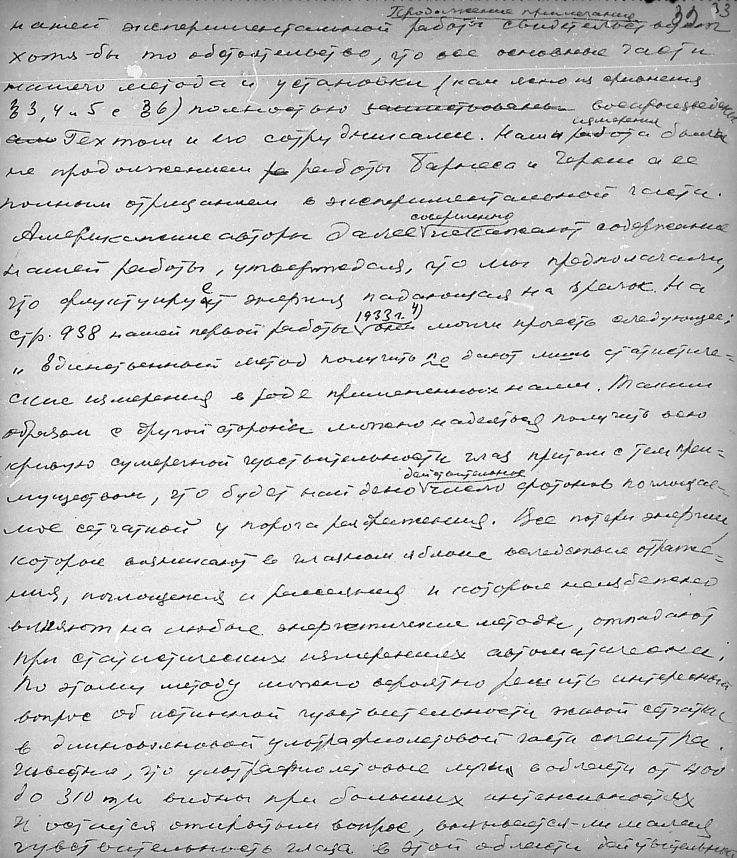 Продолжение примечания
22 33
нашей экспериментальной работы свидетельствует
хотя-бы то обстоятельство, что все основные части
нашего метода и установки (как ясно из сравнения
§3, 4 и 5 с §6) полностью заимствованы воспроизведены
Гехтом и его сотрудниками. Наши измерения работа были
не продолжением работы Барнеса и Черни а ее
полным отрицанием в экспериментальной части.
Американские авторы далее совершенно искажают содержание
нашей работы, утверждая, что мы предполагали,
что флуктуирует энергия падающая на зрачок. На
стр. 938 нашей первой работы 1933 г. 4) они могли прочесть следующее:
„Единственный метод получить no дают лишь статистиче-
ские измерения в роде примененных нами. Таким
образом с другой стороны можно надеяться получить всю
кривую сумеречной чувствительности глаз притом с тем преи-
муществом, что будет найдено действительное число фотонов поглощае-
мое сетчаткой у порога раздражения. Все потери энергии,
которые возникают в глазном яблоке вследствие отраже-
ния, поглощения и рассеяния и которые неизбежно
влияют на любые энергетические методы, отпадают
при статистических измерениях автоматически.
По этому методу можно вероятно решить интересный
вопрос об истинной чувствительности живой сетчатки
в длинноволновой ультрафиолетовой части спектра.
Известно, что ультрафиолетовые лучи в области от 400
до 310 mμ видны при больших интенсивностях
и остается открытым вопрос, вызывается-ли малая
чувствительность глаза в этой области действительно